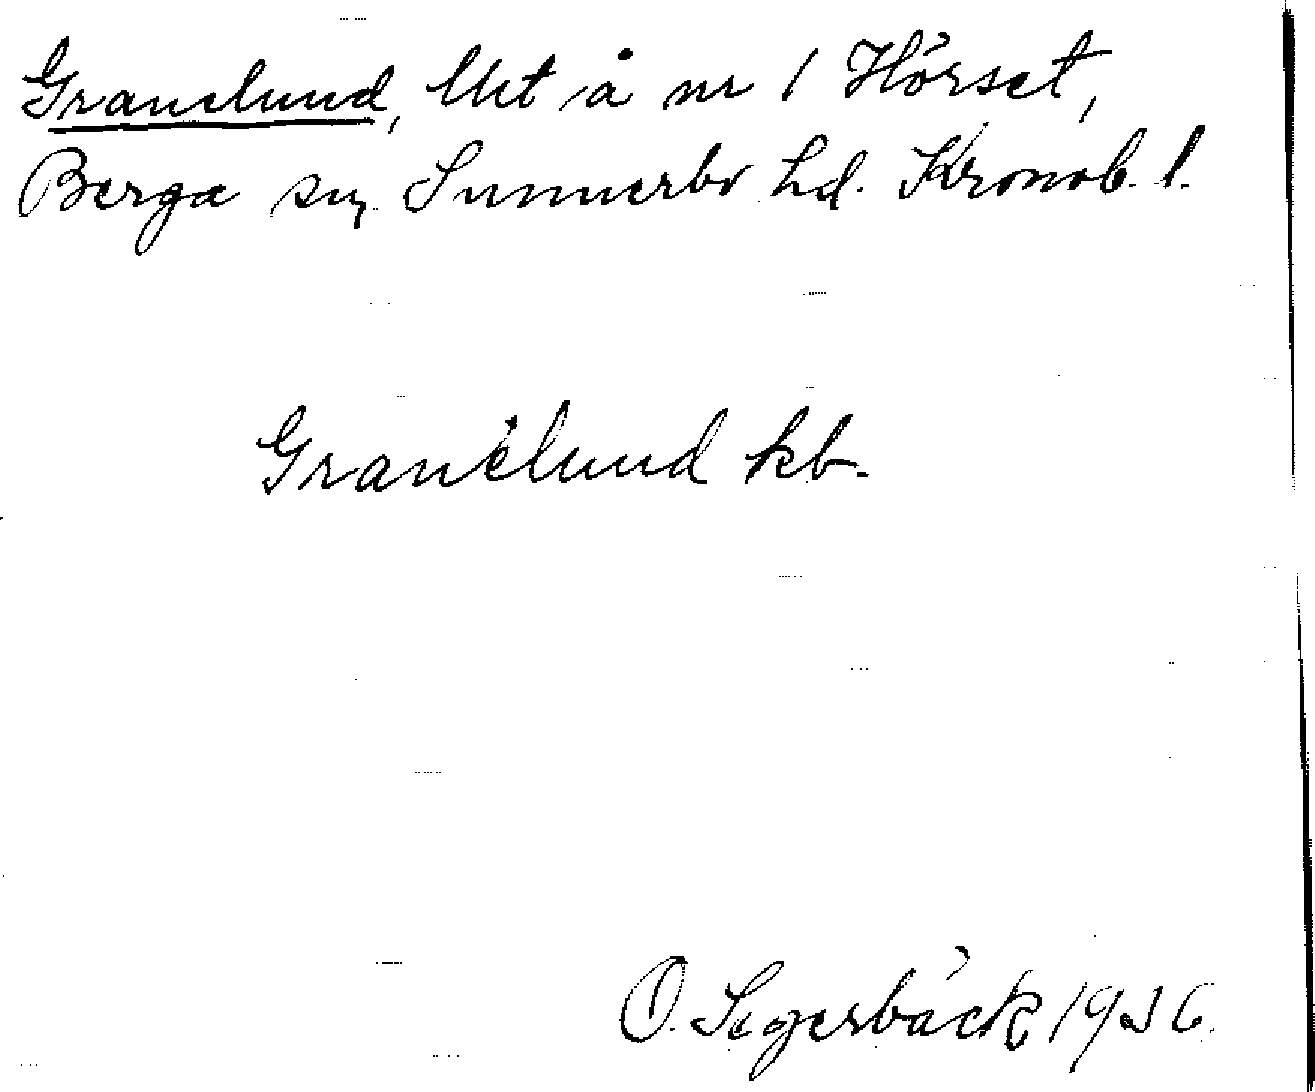 Granelund, lht å nr 1 Hörset,
Berga sn, Sunnerbo hd. Kronob. l.
Granelund kb.
O. Segerbäck 1936.